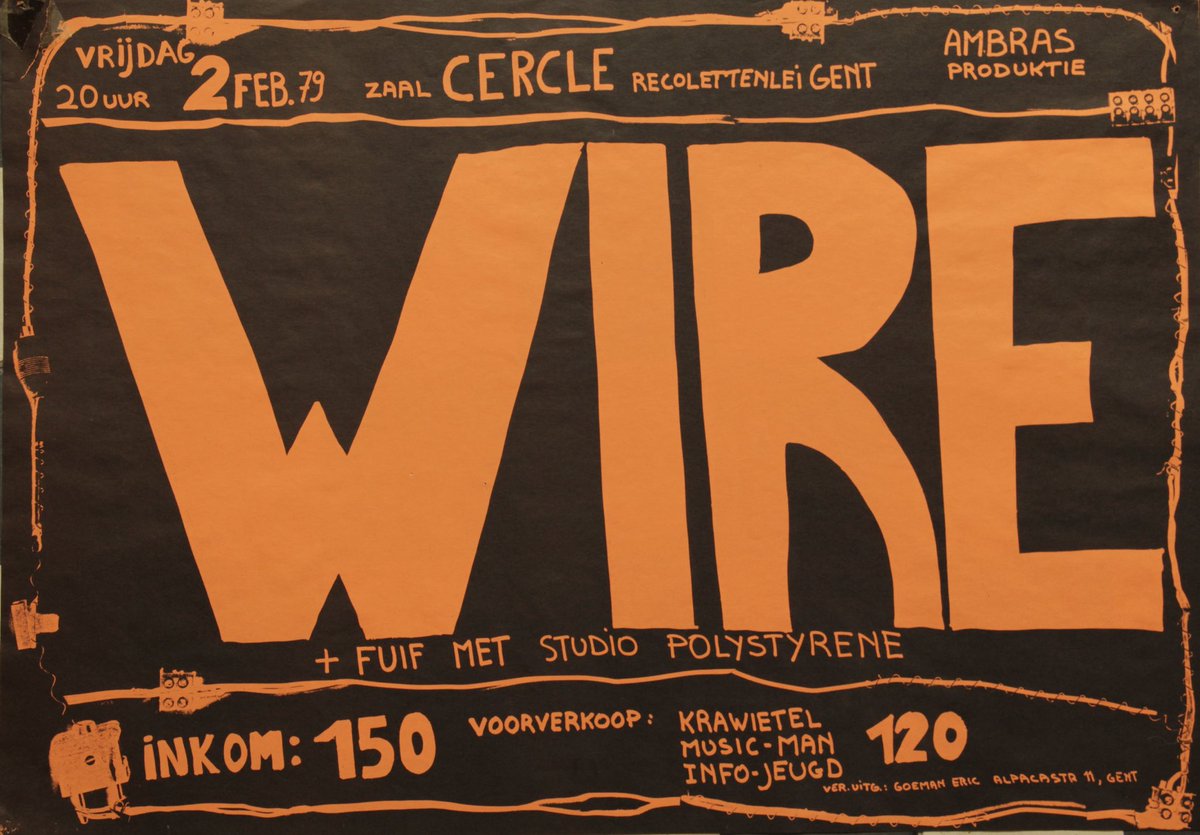 VRIJDAG
20 UUR 2 FEB. 79 ZAAL CERCLE RECOLETTENLEI GENT
AMBRAS
PRODUKTIE
WIRE
+ FUIF MET STUDIO POLYSTYRENE
INKOM: 150 VOORVERKOOP: KRAWIETEL
MUSIC-MAN
INFO-JEUGD
120
VER.UITG.: GOEMAN ERIC ALPACASTR 11, GENT